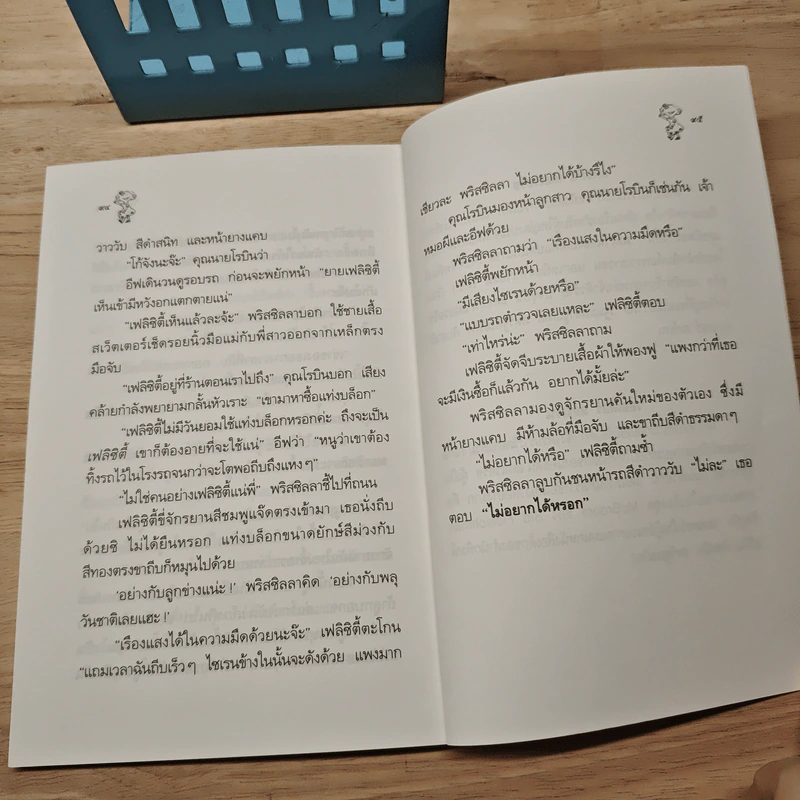 ๙๔
วาววับ สีดำสนิท และหน้ายางแคบ
"โก้จังนะจ๊ะ" คุณนายโรบินว่า
อีฟเดินวนดูรอบรถ ก่อนจะพยักหน้า "ยายเฟลิซิตี้
เห็นเข้ามีหวังอกแตกตายแน่"
"เฟลิซิตี้เห็นแล้วละจ้ะ" พริสซิลลาบอก ใช้ชายเสื้อ
สเว็ตเตอร์เช็ดรอยนิ้วมือแม่กับพี่สาวออกจากเหล็กตรง
มือจับ
"เฟลิซิตี้อยู่ที่ร้านตอนเราไปถึง" คุณโรบินบอก เสียง
คล้ายกำลังพยายามกลั้นหัวเราะ "เขามาหาซื้อแท่งบล็อก"
"เฟลิซิตี้ไม่มีวันยอมใช้แท่งบล็อกหรอกค่ะ ถึงจะเป็น
เฟลิซิตี้ เขาก็ต้องอายที่จะใช้แน่" อีฟว่า "หนูว่าเขาต้อง
ทิ้งรถไว้ในโรงรถจนกว่าจะโตพอถีบถึงแหงๆ"
"ไม่ใช่คนอย่างเฟลิซิตี้แน่พี่" พริสซิลลาชี้ไปที่ถนน
เฟลิซิตี้ขี่จักรยานสีชมพูแจ๊ดตรงเข้ามา เธอนั่งถีบ
ด้วยซิ ไม่ได้ยืนหรอก แท่งบล็อกขนาดยักษ์สีม่วงกับ
สีทองตรงขาถีบก็หมุนไปด้วย
'อย่างกับลูกข่างแน่ะ!' พริสซิลลาคิด 'อย่างกับพลุ
วันชาติเลยแฮะ!'
"เรืองแสงได้ในความมืดด้วยนะจ๊ะ" เฟลิซิตี้ตะโกน
"แถมเวลาฉันถีบเร็วๆ ไซเรนข้างในนั้นจะดังด้วย แพงมาก
๙๕
เชียวละ พริสซิลลา ไม่อยากได้บ้างรึไง"
คุณโรบินมองหน้าลูกสาว คุณนายโรบินก็เช่นกัน เจ้า
หมอผีและอีฟด้วย
พริสซิลลาถามว่า "เรืองแสงในความมืดหรือ"
เฟลิซิตี้พยักหน้า
"มีเสียงไซเรนด้วยหรือ"
"แบบรถตำรวจเลยแหละ" เฟลิซิตี้ตอบ
"เท่าไหร่น่ะ" พริสซิลลาถาม
เฟลิซิตี้จัดจีบระบายเสื้อผ้าให้พองฟู "แพงกว่าที่เธอ
จะมีเงินซื้อก็แล้วกัน อยากได้มั้ยล่ะ"
พริสซิลลามองดูจักรยานคันใหม่ของตัวเอง ซึ่งมี
หน้ายางแคบ มีห้ามล้อที่มือจับ และขาถีบสีดำธรรมดาๆ
"ไม่อยากได้หรือ" เฟลิซิตี้ถามซ้ำ
พริสซิลลาลูบกันชนหน้ารถสีดำวาววับ "ไม่ละ" เธอ
ตอบ "ไม่อยากได้หรอก"